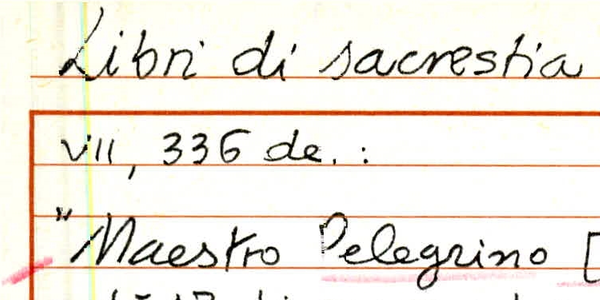 Libri di sacrestia
VII, 336 de. :
"Maestro Pelegrino [